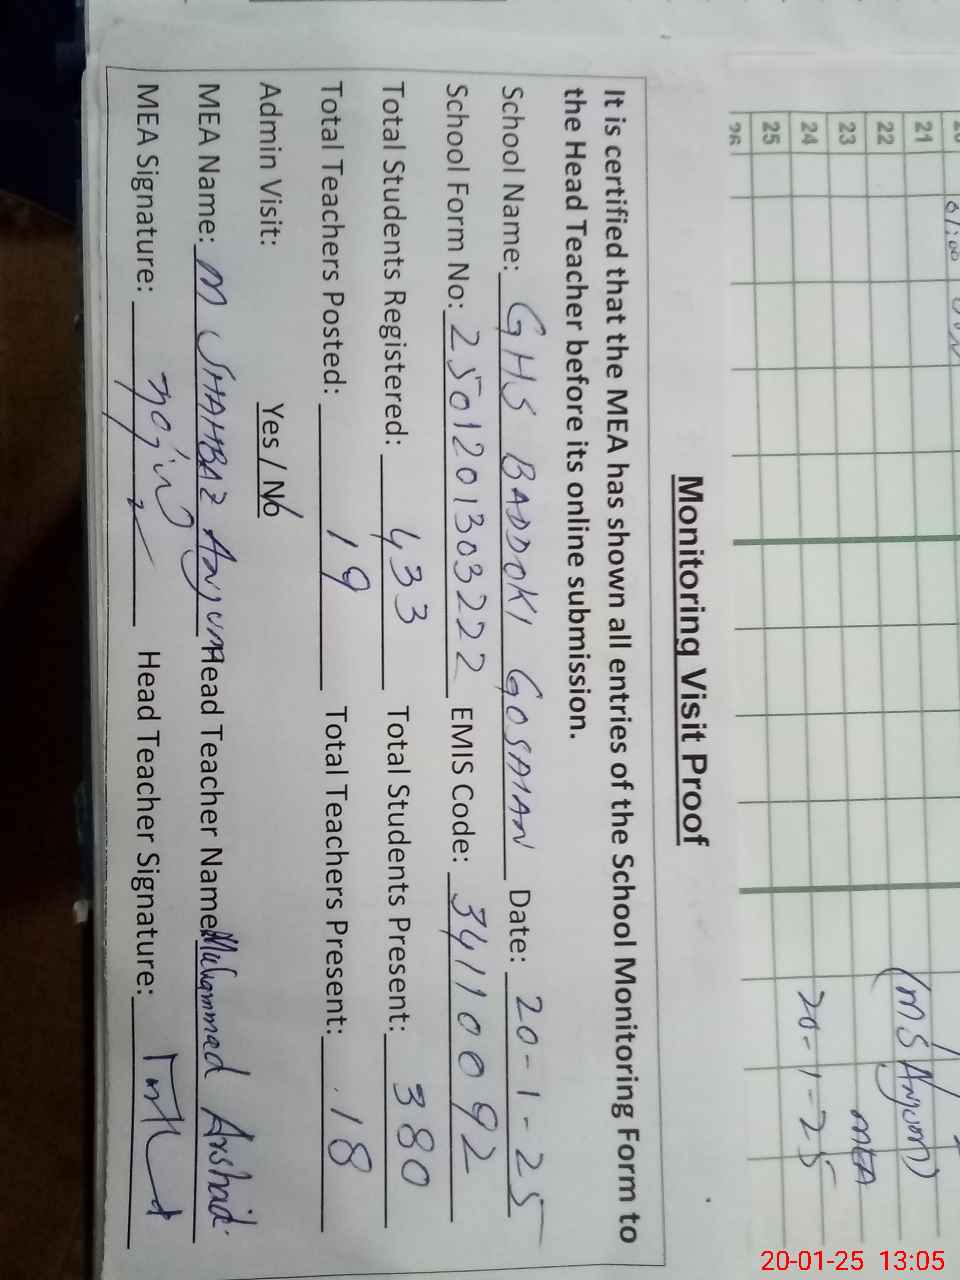 20
61:00
21
22
23
24
25
26
(MS Anjum)
MEA
20-1-25
Monitoring Visit Proof
It is certified that the MEA has shown all entries of the School Monitoring Form to
the Head Teacher before its online submission.
School Name: GHS BADDOKI GOSAIAN Date: 20-1-25
School Form No: 2501201303222 EMIS Code: 34110092
Total Students Registered: 433 Total Students Present: 380
Total Teachers Posted: 19 Total Teachers Present: 18
Admin Visit: Yes / No
MEA Name: M SHAHBAZ Anjum Head Teacher Name: Muhammad Arshad
MEA Signature: Head Teacher Signature:
20-01-25 13:05